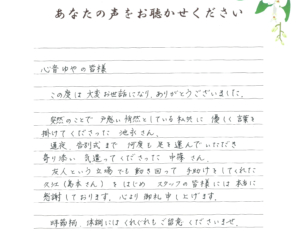 あなたの声をお聴かせください
心音ゆやの皆様
この度は大変お世話になり、ありがとうございました。
突然のことで 戸惑い 呆然としている私共に 優しく言葉を
掛けてくださった 池永さん。
通夜、告別式まで 何度も足を運んでいただき
寄り添い 気遣ってくださった 中篠さん。
友人という立場でも動き回って 手助けをしてくれた
(島本さん)をはじめ スタッフの皆様には本当に
感謝しております。心より御礼申し上げます。
時節柄、体調にはくれぐれもご留意くださいませ。